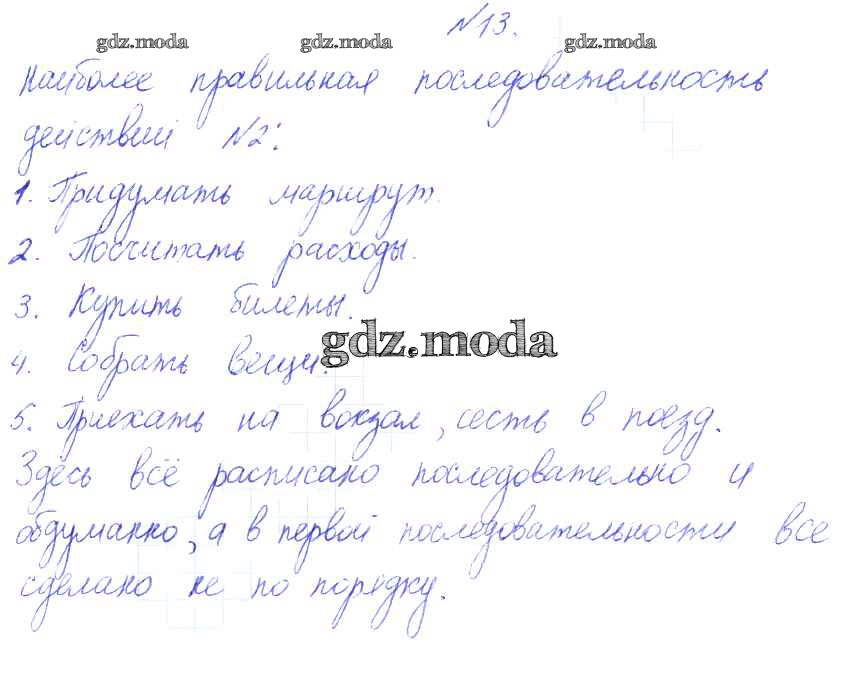 №13.
gdz.moda gdz.moda gdz.moda
Наиболее правильная последовательность
действий №2:
1. Придумать маршрут.
2. Посчитать расходы.
3. Купить билеты.
gdz.moda
4. Собрать вещи.
5. Приехать на вокзал, сесть в поезд.
Здесь всё расписано последовательно и
обдуманно, а в первой последовательности все
сделано не по порядку.